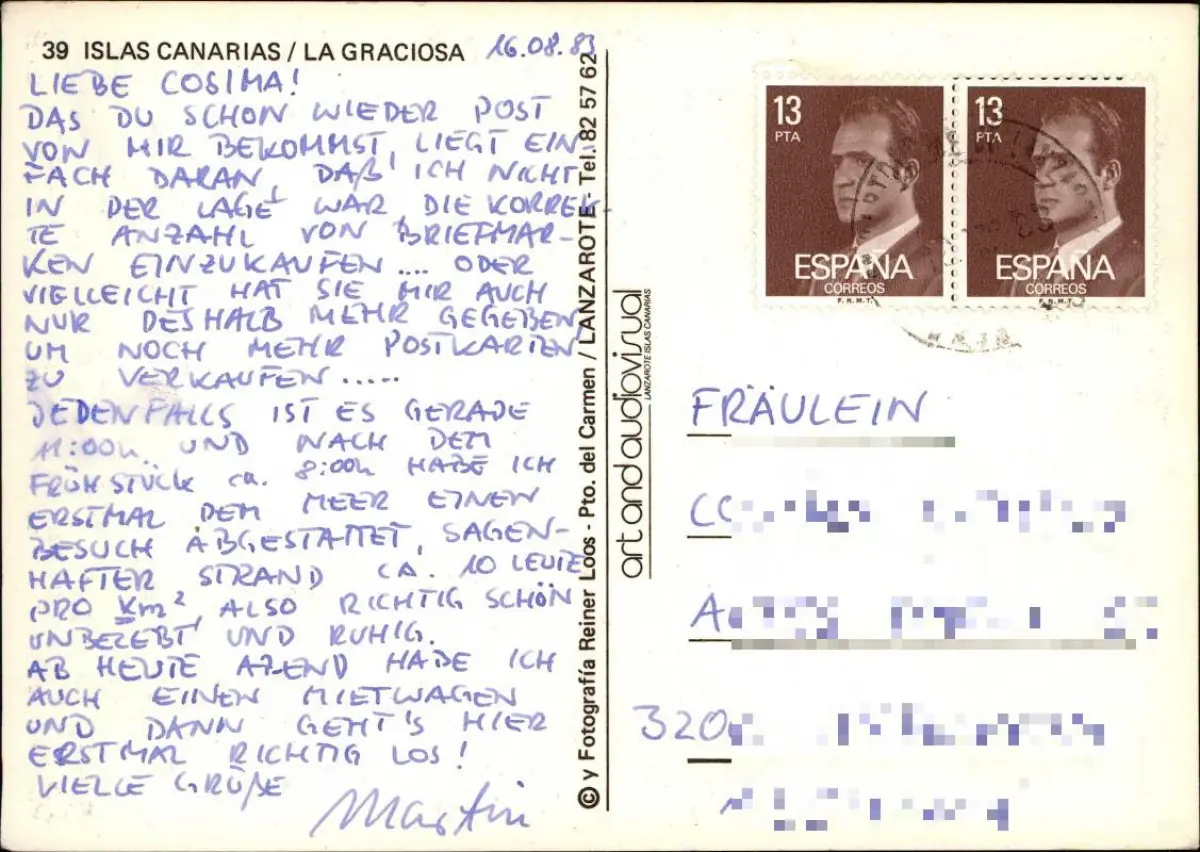 39 ISLAS CANARIAS / LA GRACIOSA
16.08.83
LIEBE COSIMA!
DAS DU SCHON WIEDER POST
VON MIR BEKOMMST, LIEGT EIN
FACH DARAN, DAß ICH NICHT
IN DER LAGE WAR, DIE KORREK-
TE ANZAHL VON BRIEFMAR-
KEN EINZUKAUFEN .... ODER
VIELLEICHT HAT SIE MIR AUCH
NUR DESHALB MEHR GEGEBEN
UM NOCH MEHR POSTKARTEN
ZU VERKAUFEN .....
JEDENFALLS IST ES GERADE
11:00h UND NACH DEM
FRÜHSTÜCK ca. 8:00h HABE ICH
ERSTMAL DEM MEER EINEN
BESUCH ABGESTATTET, SAGEN-
HAFTER STRAND CA. 10 LEUTE
PRO Km², ALSO RICHTIG SCHÖN
UNBELEBT UND RUHIG.
AB HEUTE ABEND HABE ICH
AUCH EINEN MIETWAGEN
UND DANN GEHT'S HIER
ERSTMAL RICHTIG LOS!
VIELLE GRÜßE
Martin
© y Fotografía Reiner Loos - Pto. del Carmen / LANZAROTE - Tel. 82 57 62
art and audiovisual
LANZAROTE ISLAS CANARIAS
13
PTA
ESPAÑA
CORREOS
F.N.M.T.
13
PTA
ESPAÑA
CORREOS
F.N.M.T.
FRÄULEIN
320